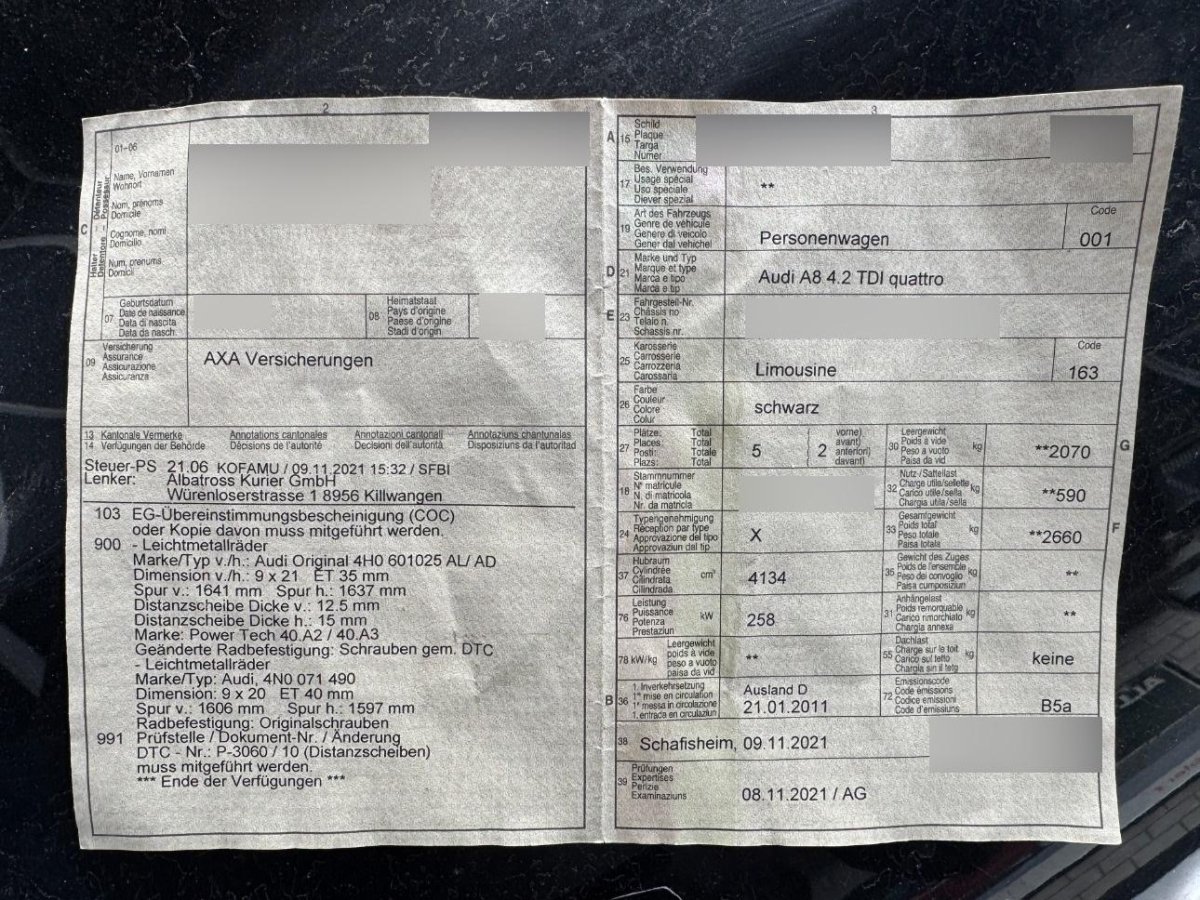 2
01-06
Name, Vornamen
Wohnort
Nom, prénoms
Domicile
Cognome, nomi
Domicilio
Num, prenums
Domicil
C
Halter – Détenteur
Detentore – Possessur
07
Geburtsdatum
Date de naissance
Data di nascita
Data da nasch.
08
Heimatstaat
Pays d'origine
Paese d'origine
Stadi d'origin
09
Versicherung
Assurance
Assicurazione
Assicuranza
AXA Versicherungen
13 Kantonale Vermerke Annotations cantonales Annotazioni cantonali Annotaziuns chantunalas
14 Verfügungen der Behörde Décisions de l'autorité Decisioni dell'autorità Disposiziuns da l'autoritad
Steuer-PS 21.06 KOFAMU / 09.11.2021 15:32 / SFBI
Lenker: Albatross Kurier GmbH
Würenloserstrasse 1 8956 Killwangen
103 EG-Übereinstimmungsbescheinigung (COC)
oder Kopie davon muss mitgeführt werden.
900 - Leichtmetallräder
Marke/Typ v./h.: Audi Original 4H0 601025 AL/ AD
Dimension v./h.: 9 x 21 ET 35 mm
Spur v.: 1641 mm Spur h.: 1637 mm
Distanzscheibe Dicke v.: 12.5 mm
Distanzscheibe Dicke h.: 15 mm
Marke: Power Tech 40.A2 / 40.A3
Geänderte Radbefestigung: Schrauben gem. DTC
- Leichtmetallräder
Marke/Typ: Audi, 4N0 071 490
Dimension: 9 x 20 ET 40 mm
Spur v.: 1606 mm Spur h.: 1597 mm
Radbefestigung: Originalschrauben
991 Prüfstelle / Dokument-Nr. / Änderung
DTC - Nr.: P-3060 / 10 (Distanzscheiben)
muss mitgeführt werden.
*** Ende der Verfügungen ***
3
A 15
Schild
Plaque
Targa
Numer
17
Bes. Verwendung
Usage spécial
Uso speciale
Diever spezial
**
19
Art des Fahrzeugs
Genre de véhicule
Genere di veicolo
Gener dal vehichel
Personenwagen
Code
001
D 21
Marke und Typ
Marque et type
Marca e tipo
Marca e tip
Audi A8 4.2 TDI quattro
E 23
Fahrgestell-Nr.
Châssis no
Telaio n.
Schassis nr.
25
Karosserie
Carrosserie
Carrozzeria
Carossaria
Limousine
Code
163
26
Farbe
Couleur
Colore
Colur
schwarz
27
Plätze: Total
Places: Total
Posti: Totale
Plazs: Total
5
2
vorne)
avant)
anteriori)
davant)
30
Leergewicht
Poids à vide
Peso a vuoto
Paisa da vid
kg
**2070
G
18
Stammnummer
N° matricule
N. di matricola
Nr. da matricla
32
Nutz-/Sattellast
Charge utile/sellette
Carico utile/sella
Chargia utila/sella
kg
**590
24
Typengenehmigung
Réception par type
Approvazione del tipo
Approvaziun dal tip
X
33
Gesamtgewicht
Poids total
Peso totale
Paisa totala
kg
**2660
F
37
Hubraum
Cylindrée
Cilindrata
Cilindrada
cm³
4134
35
Gewicht des Zuges
Poids de l'ensemble
Peso del convoglio
Paisa cumposiziun
kg
**
76
Leistung
Puissance
Potenza
Prestaziun
kW
258
31
Anhängelast
Poids remorquable
Carico rimorchiato
Chargia annexa
kg
**
78 kW/kg
Leergewicht
poids à vide
peso a vuoto
paisa da vid
**
55
Dachlast
Charge sur le toit
Carico sul tetto
Chargia sin il tetg
kg
keine
B 36
1. Inverkehrsetzung
1re mise en circulation
1a messa in circolazione
1. entrada en circulaziun
Ausland D
21.01.2011
72
Emissionscode
Code émissions
Codice emissioni
Code d'emissiuns
B5a
38 Schafisheim, 09.11.2021
39
Prüfungen
Expertises
Perizie
Examinaziuns
08.11.2021 / AG